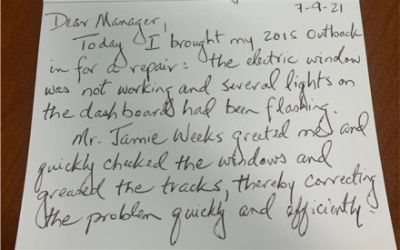 7-9-21
Dear Manager,
Today I brought my 2015 Outback
in for a repair: the electric window
was not working and several lights on
the dashboard had been flashing.
Mr. Jamie Weeks greeted me and
quickly checked the windows and
greased the tracks, thereby correcting
the problem quickly and efficiently.